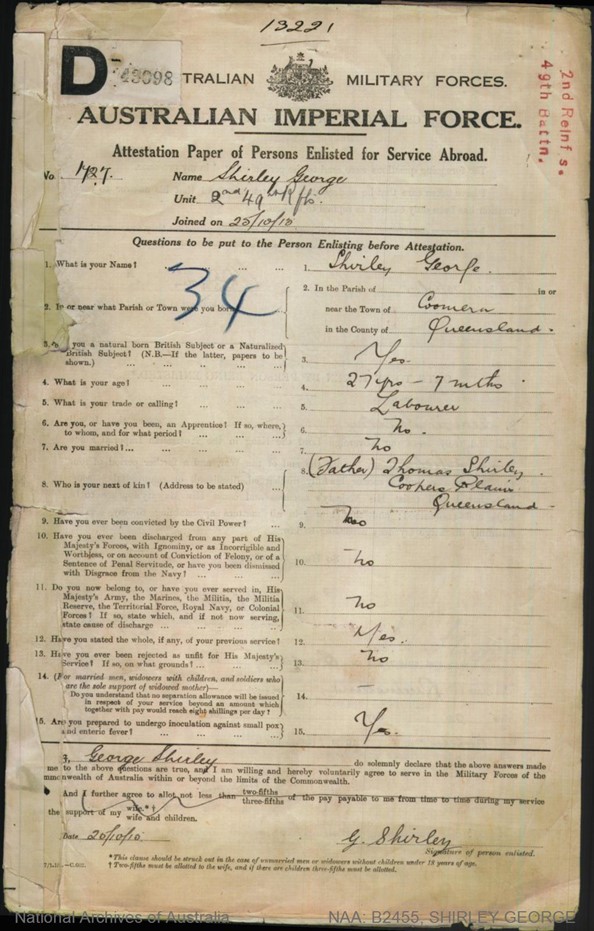 13221
D 43098
TRALIAN MILITARY FORCES.
AUSTRALIAN IMPERIAL FORCE.
2nd Reinf's.
49th Battn.
Attestation Paper of Persons Enlisted for Service Abroad.
No. 1727. Name Shirley George
Unit 2nd 49th Rfts.
Joined on
Questions to be put to the Person Enlisting before Attestation.
1. What is your Name? ... ... 1. Shirley George.
34
2. In the Parish of in or
2. In or near what Parish or Town were you born near the Town of Coomera
in the County of Queensland.
3. you a natural born British Subject or a Naturalized
British Subject? (N.B.—If the latter, papers to be
shown.) ... ... ... ... 3. Yes.
4. What is your age? ... ... 4. 27 yrs - 7 mths.
5. What is your trade or calling? ... ... 5. Labourer
6. Are you, or have you been, an Apprentice? If so, where,
to whom, and for what period? ... ... 6. No.
7. Are you married?... ... ... 7. No
8. Who is your next of kin? (Address to be stated) ... 8. (Father) Thomas Shirley.
Coopers Plains
Queensland.
9. Have you ever been convicted by the Civil Power? ... 9. No
10. Have you ever been discharged from any part of His
Majesty's Forces, with Ignominy, or as Incorrigible and
Worthless, or on account of Conviction of Felony, or of a
Sentence of Penal Servitude, or have you been dismissed
with Disgrace from the Navy? ... ... ... 10. No
11. Do you now belong to, or have you ever served in, His
Majesty's Army, the Marines, the Militia, the Militia
Reserve, the Territorial Force, Royal Navy, or Colonial
Forces? If so, state which, and if not now serving,
state cause of discharge ... ... ... 11. No
12. Have you stated the whole, if any, of your previous service? 12. Yes.
13. Have you ever been rejected as unfit for His Majesty's
Service? If so, on what grounds? ... ... 13. No
14. (For married men, widowers with children, and soldiers who
are the sole support of widowed mother)—
Do you understand that no separation allowance will be issued
in respect of your service beyond an amount which
together with pay would reach eight shillings per day? 14. —
15. Are you prepared to undergo inoculation against small pox
and enteric fever? ... ... ... 15. Yes.
I, George Shirley do solemnly declare that the above answers made
me to the above questions are true, and I am willing and hereby voluntarily agree to serve in the Military Forces of the
mmonwealth of Australia within or beyond the limits of the Commonwealth.
And I further agree to allot not less than two-fifths three-fifths of the pay payable to me from time to time during my service
the support of my wife.*† wife and children.
Date G. Shirley
Signature of person enlisted.
*This clause should be struck out in the case of unmarried men or widowers without children under 18 years of age.
† Two-fifths must be allotted to the wife, and if there are children three-fifths must be allotted.
National Archives of Australia NAA: B2455, SHIRLEY GEORGE